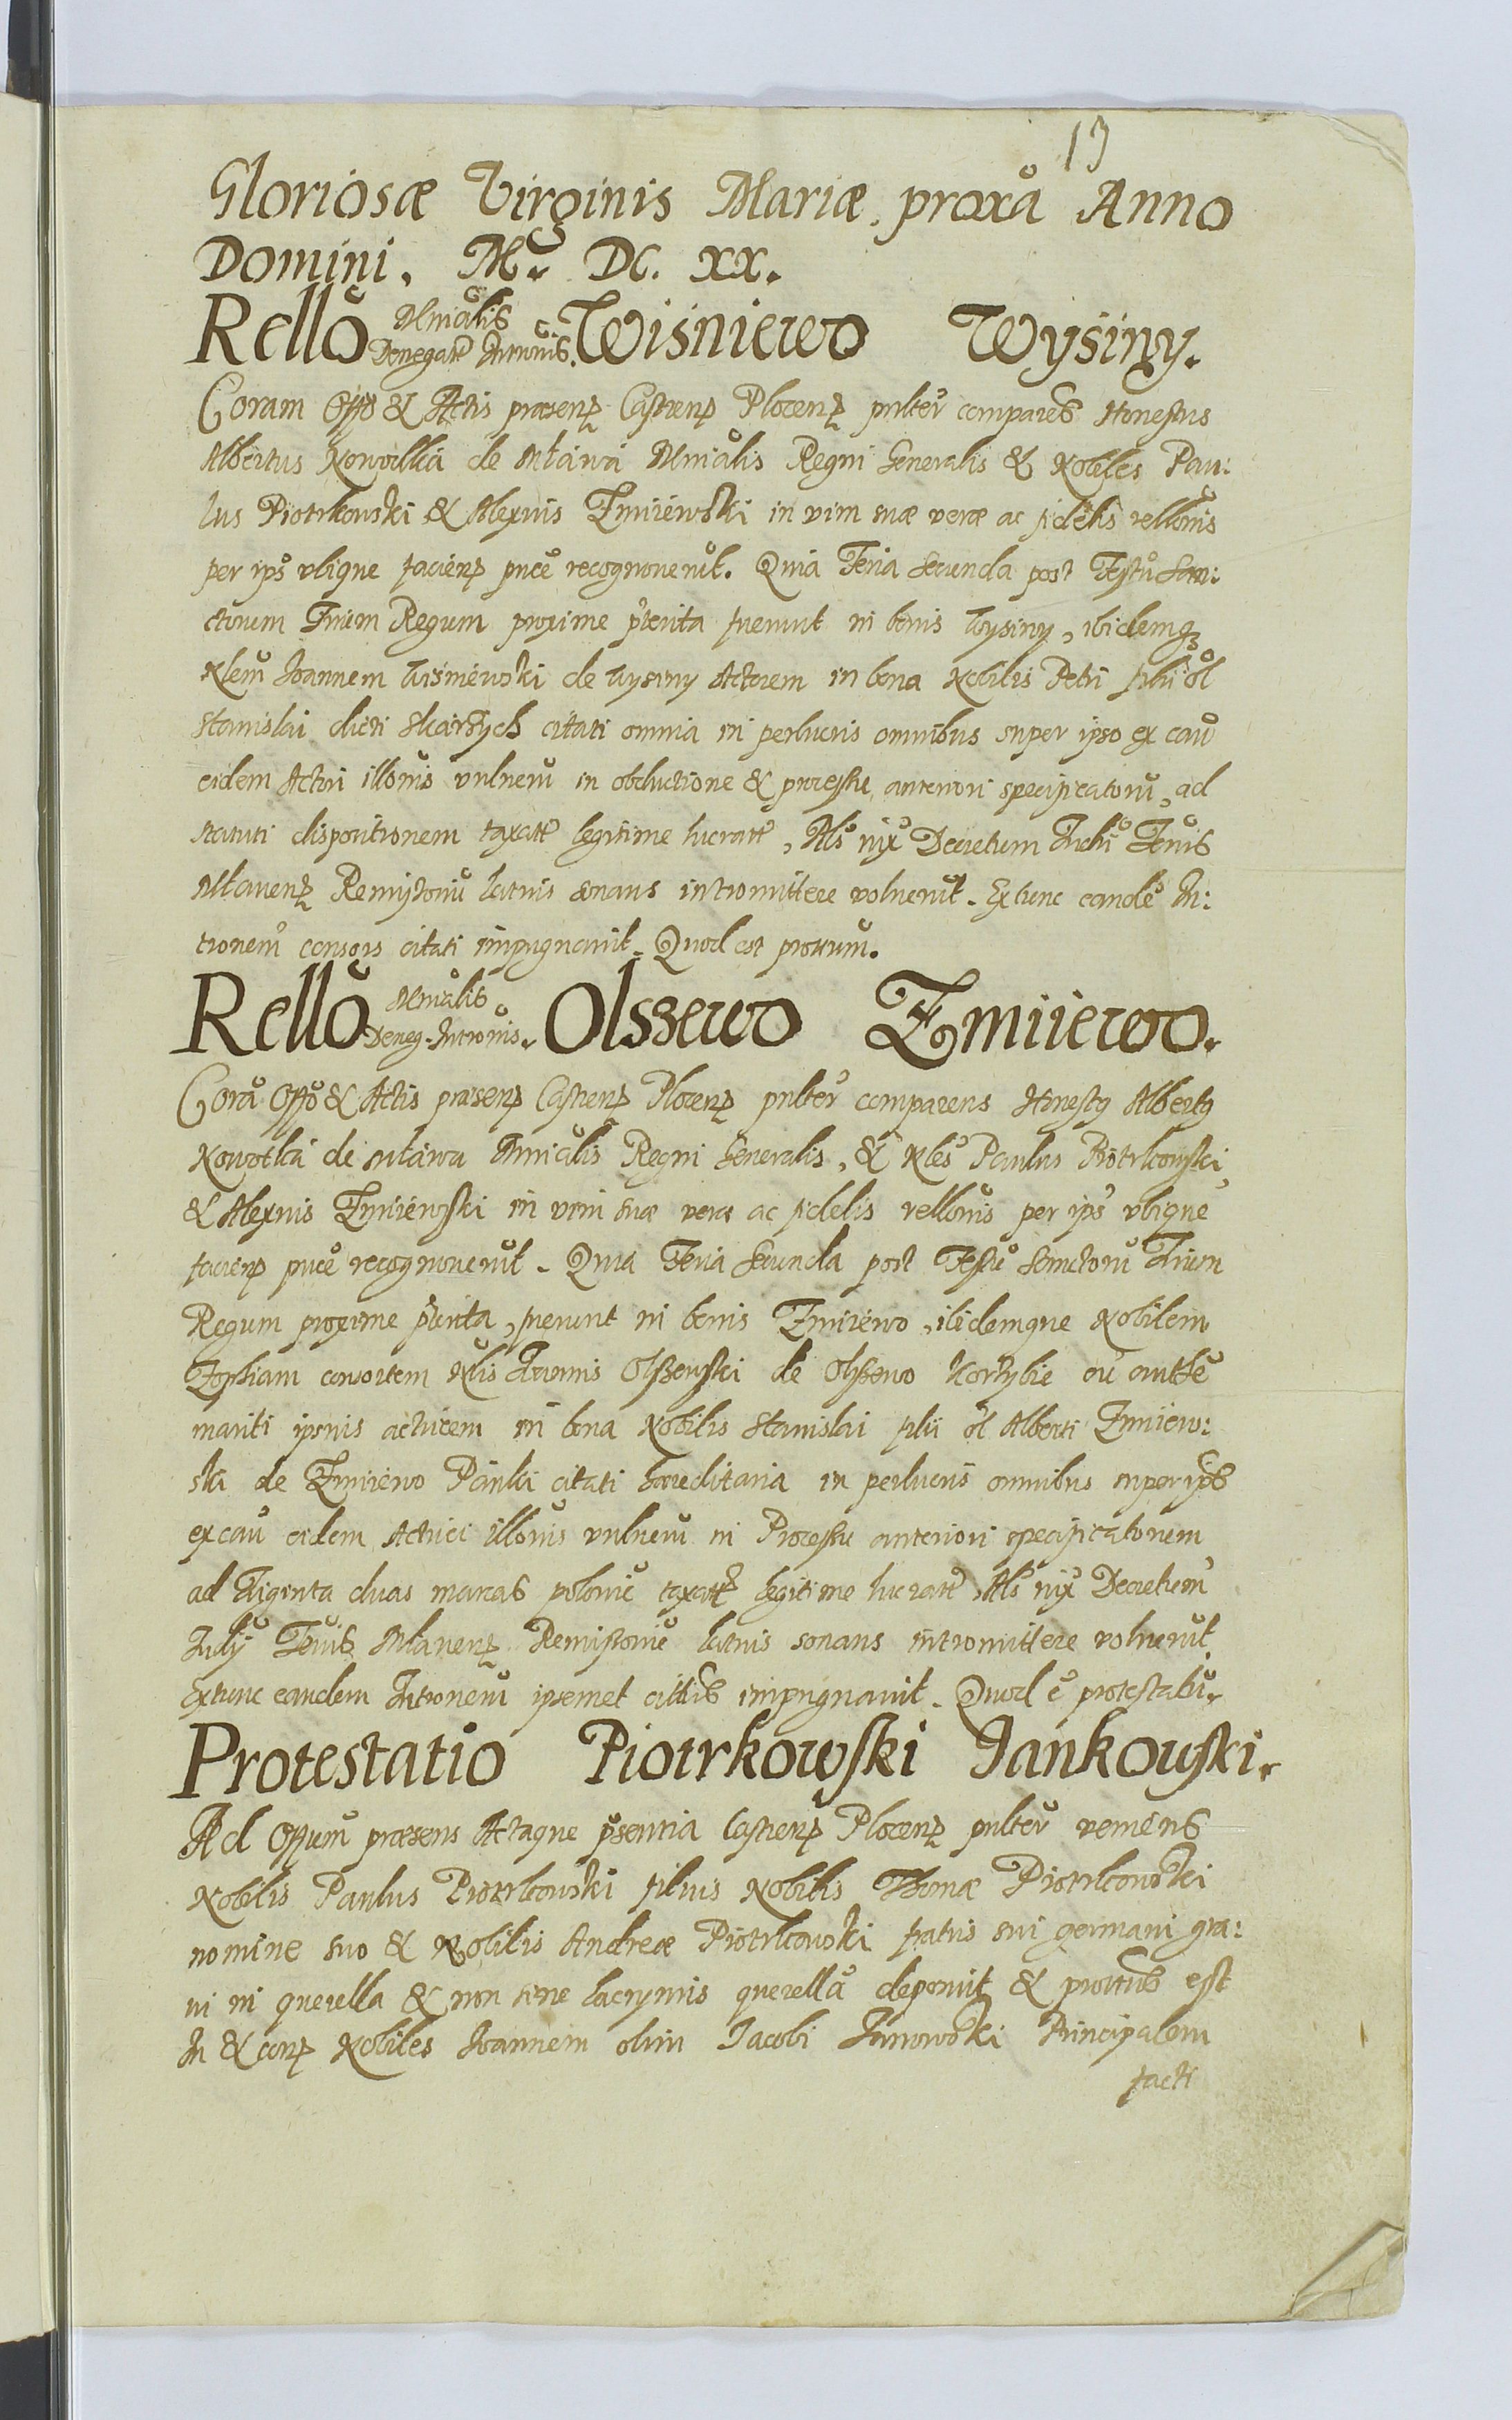 13
Gloriosæ Virginis Mariæ, proxã Anno
Domini. M. DC. XX.
Rello Mnialis Denegatæ Intronis. Wiśniewo Wysiny.
Coram Offo & Actis præsenp Castrenp Plocenp pnlter comparens Honestus
Albertus Nowotka de Mława Mnialis Regni Generalis & Nobiles Pau:
lus Piotrkowski & Alexius Zmiiewski in vim suæ veræ ac fidelis rellonis
per ips vbique facienp pnce recognouerut. Quia Feria Secunda post Festu San:
ctorum Trium Regum proxime pterita fuerunt in bonis Wysiny, ibidemq3
Nlem Joannem Wiśniewski de Wysiny Actorem in bona Nobilis Petri filii ol
Stanislai dicti citati omnia in perlucris omnibus super ipso ex cau
eidem Actori illonis vulneru in obductione & processu anteriori specificatoru, ad
statuti dispositionem taxatæ legitime lucratæ, Als iux Decretum Iudii Terris
Mławenp Remissoriu latius sonans intromittere voluerut. Extunc eande In:
tronem consors citati impugnauit. Quod est prottum.
Rello Mnialis Deneg. Intronis. Olszewo Zmiiewo.
Cora Offo & Actis præsenp Castrenp Plocenp pnlter comparens Honestg Albertg
Nowotka de Mława Mnialis Regni Generalis, & Nles Paulus Piotrkowski
& Alexius Zmiiewski in vim suæ veræ ac fidelis rellonis per ips vbique
facienp pnce recognouerut. Quia Feria Secunda post Festu Sanctoru Trium
Regum proxime pterita, fuerunt in bonis Zmiiewo, ibidemque Nobilem
Zophiam consortem Nlis Olszewski de Olszewo cu autte
mariti ipsius actricem in bona Nobilis Stanislai filii ol Alberti Zmiiew:
ski de Zmiiewo Pańki citati hæreditaria in perlucris omnibus super ipso
ex cau eidem Actrici illonis vulneru in Processu anteriori specificatorem
ad Triginta duas marcas polonic taxatæ legitime lucratæ, Als iux Decretum
Iudij Terris Mławenp Remissoriu latius sonans intromittere voluerut.
Extunc eandem Intronem ipsemet cittus impugnauit. Quod e protestatu.
Protestatio Piotrkowski Jankowski.
Ad Offum præsens Actaque psentia Castrenp Plocenp pnlter veniens
Nobilis Paulus Piotrkowski filius Nobilis Thomæ Piotrkowski
nomine suo & Nobilis Andreæ Piotrkowski fratris sui germani gra:
ui in querella & non sine lacrymis querella deposuit & prottus est
In & conp Nobiles Joannem olim Jacobi Principalem
facti